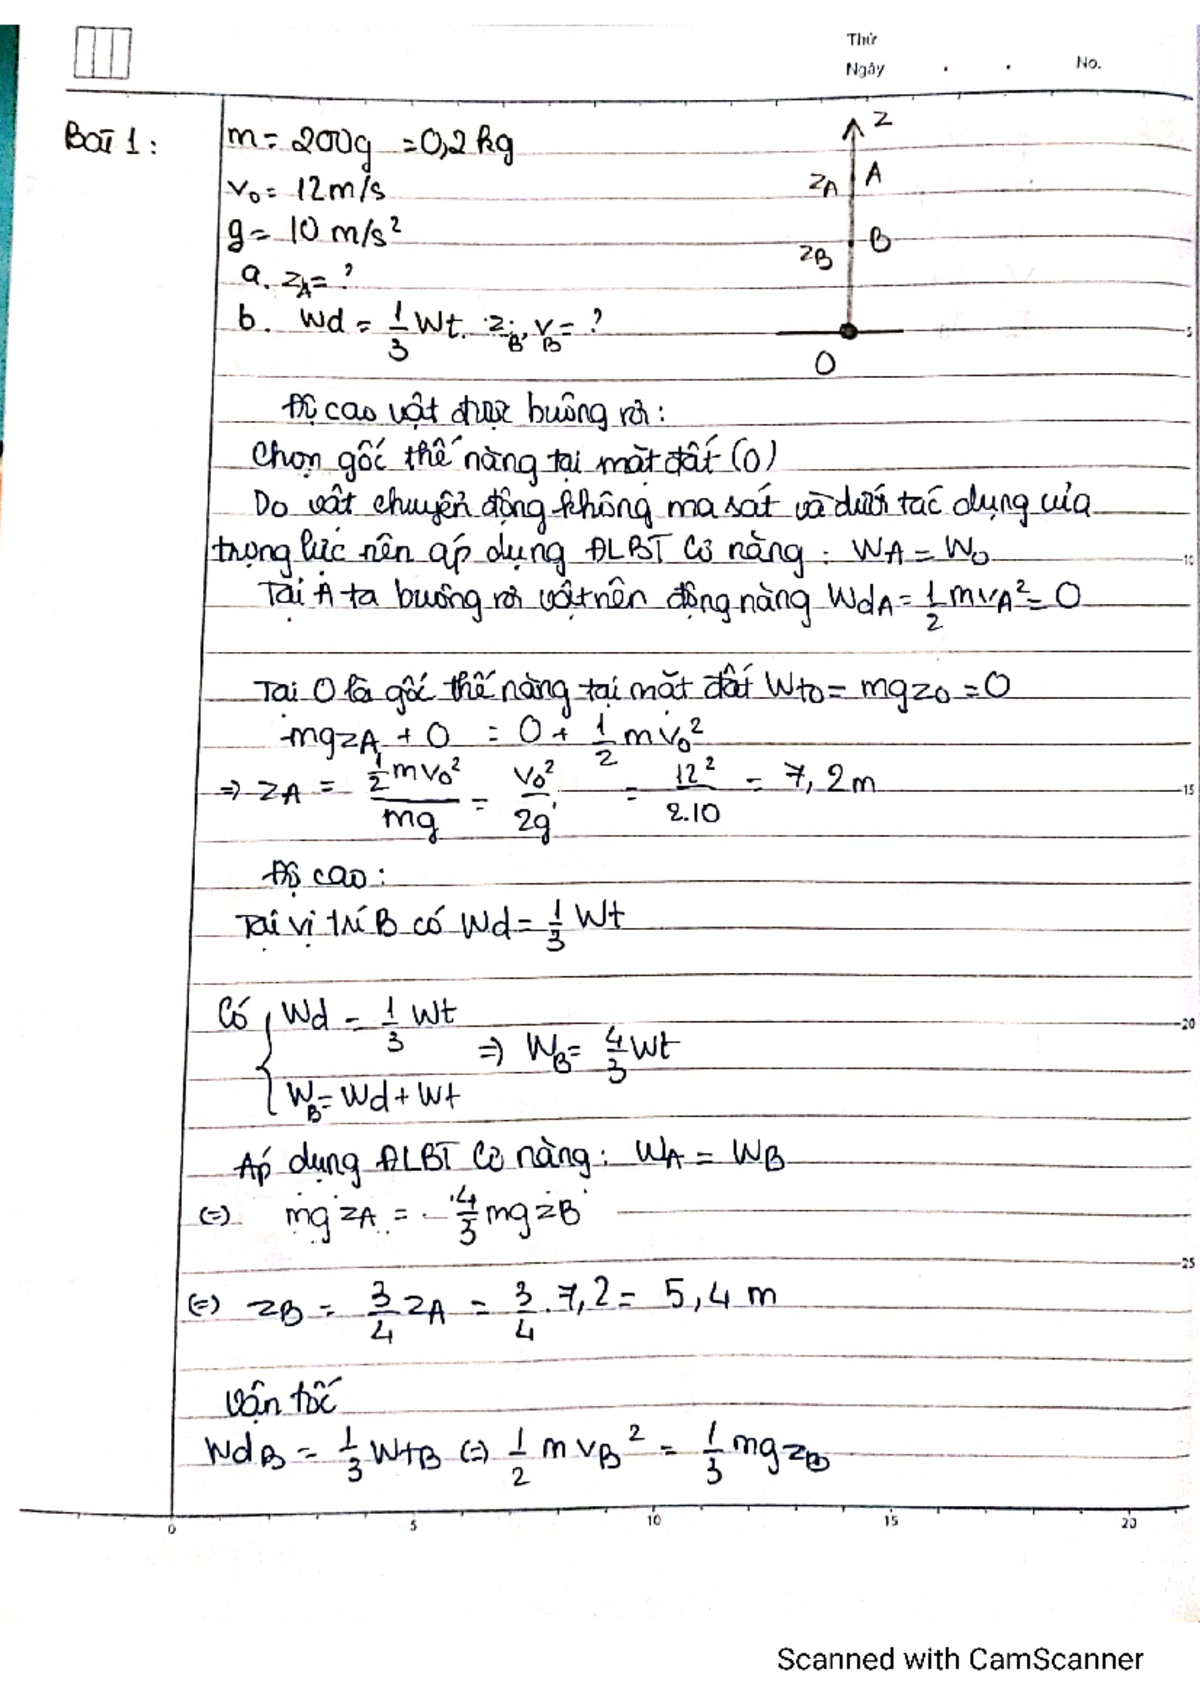 Thứ
Ngày . . No.
Bài 1: m = 200g = 0,2 kg
v₀ = 12 m/s
g = 10 m/s²
a. zA = ?
b. Wd = 1/3 Wt. zB, vB = ?
z
zA A
zB B
O
Độ cao vật được buông rơi:
Chọn gốc thế năng tại mặt đất (O)
Do vật chuyển động không ma sát và dưới tác dụng của
trọng lực nên áp dụng ĐLBT Cơ năng: WA = W₀
Tại A ta buông rơi vật nên động năng WdA = 1/2 mvA² = 0
Tại O là gốc thế năng tại mặt đất Wt₀ = mgz₀ = 0
mgzA + 0 = 0 + 1/2 mv₀²
=> zA = (1/2 mv₀²)/mg = v₀²/2g = 12²/2.10 = 7,2m
Độ cao:
Tại vị trí B có Wd = 1/3 Wt
Có { Wd = 1/3 Wt
=> WB = 4/3 Wt
WB = Wd + Wt
Áp dụng ĐLBT Cơ năng: WA = WB
(=) mgzA = 4/3 mgzB
(=) zB = 3/4 zA = 3/4 . 7,2 = 5,4 m
Vận tốc
WdB = 1/3 WtB (=) 1/2 m vB² = 1/3 mgzB
5
10
15
20
25
0 5 10 15 20
Scanned with CamScanner